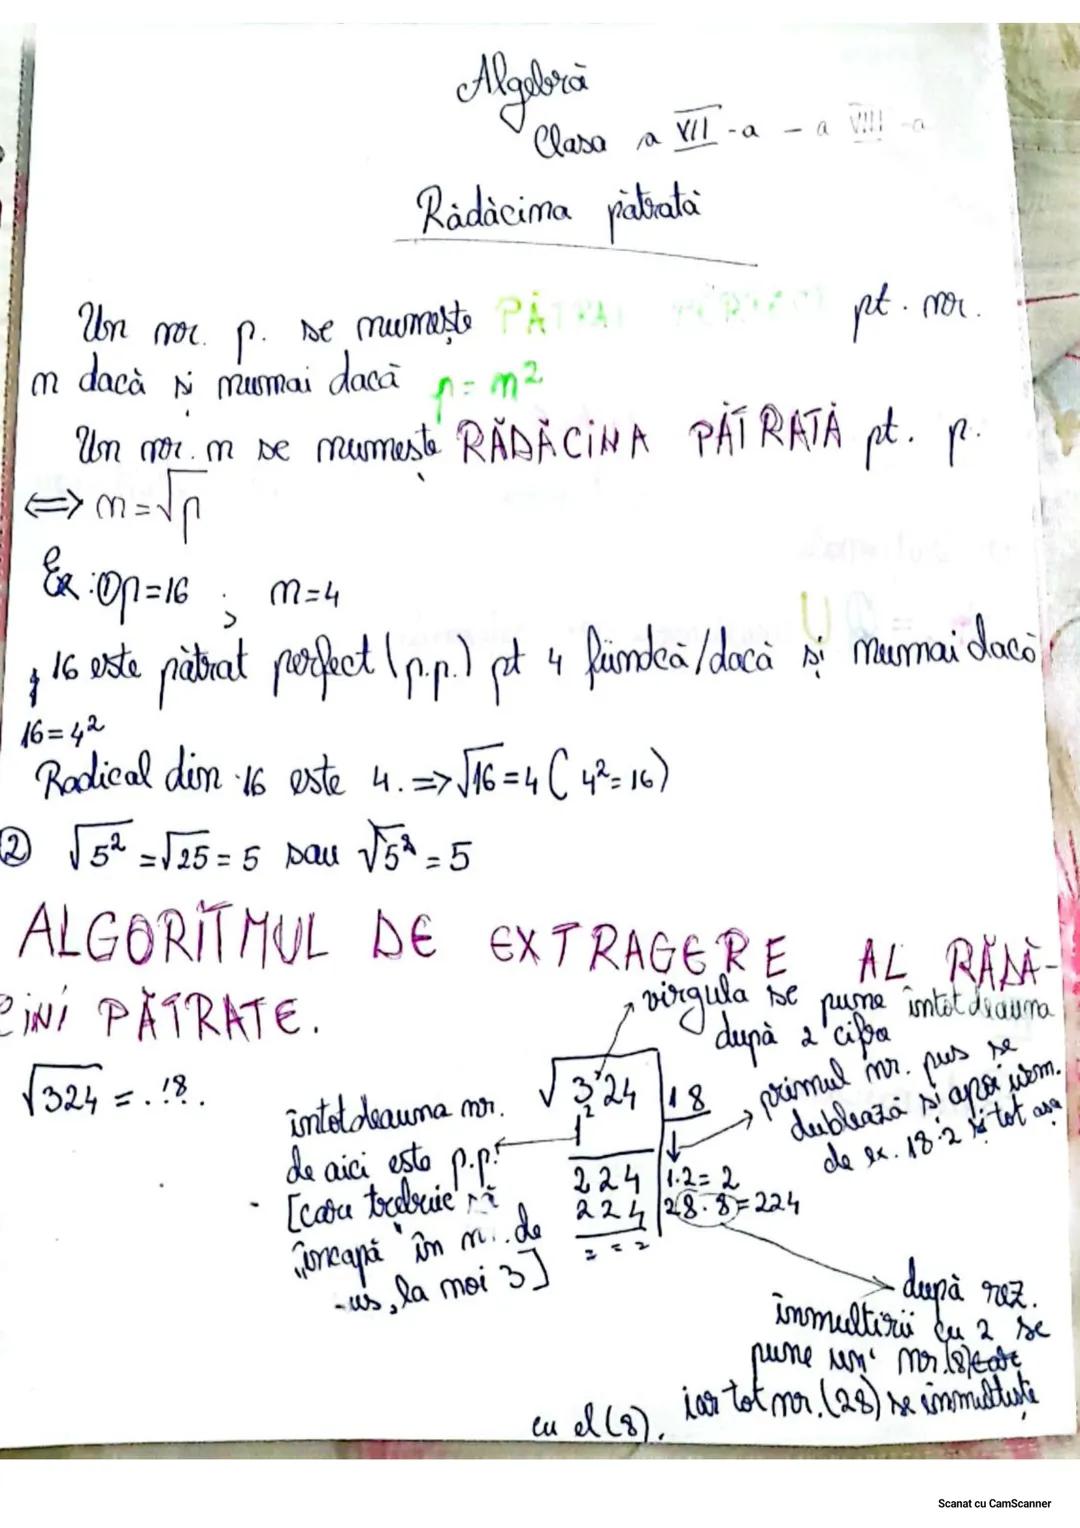 Algebră
Clasa a VII-a - a VIII-a
Rădăcina pătrată
Un nr. p. se numește PĂTRAT PERFECT pt. nr.
n dacă și numai dacă p = n²
Un nr. n se numește RĂDĂCINA PĂTRATĂ pt. p.
⟺ n = √p
Ex: ① p=16 ; n=4
16 este pătrat perfect (p.p.) pt 4 fiindcă/dacă și numai dacă
16 = 4²
Radical din 16 este 4. => √16 = 4 ( 4² = 16)
② √5² = √25 = 5 sau √5² = 5
ALGORITMUL DE EXTRAGERE AL RĂDĂ-
CINI PĂTRATE.
virgula se pune întotdeauna
după 2 cifre
√324 = .18.
√3'24 | 18
1²
224 | 1·2 = 2
224 | 28·8 = 224
= = =
întotdeauna nr.
de aici este p.p.
[care trebuie să
„încapă" în n. de
us, la noi 3]
primul nr. pus se
dublează și apoi urm.
de ex. 18·2 și tot așa
după rez.
înmulțirii cu 2 se
pune un nr. (8)
iar tot nr. (28) se înmulțește
cu el (8).
Scanat cu CamScanner